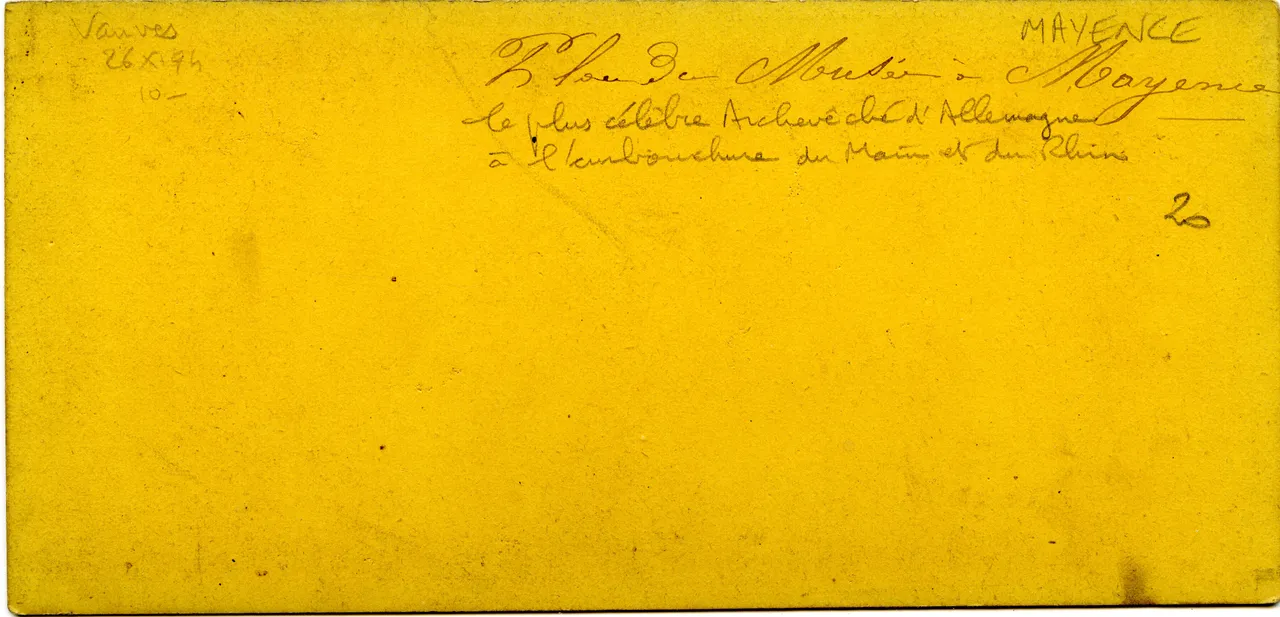 Vanves
26 XI 94
10 –
MAYENCE
Place du Musée à Mayence
le plus célèbre Archevêché d'Allemagne
à l'embouchure du Main et du Rhin
20